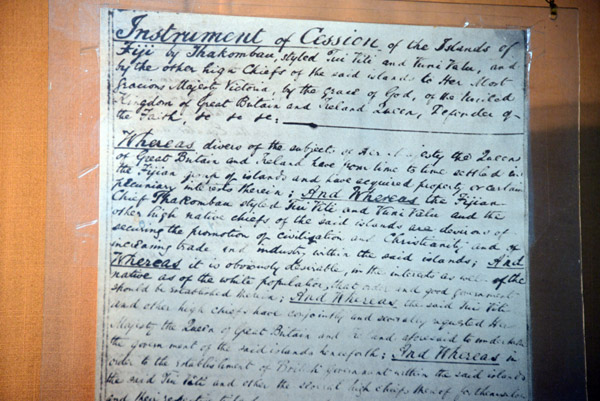 Instrument of Cession of the Islands of
Fiji by Thakombau, styled Tui Viti and Vuni Valu, and
by the other high Chiefs of the said islands to Her Most
Gracious Majesty Victoria, by the grace of God, of the United
Kingdom of Great Britain and Ireland Queen, Defender of
the Faith, &c &c &c:
Whereas divers of the subjects of Her Majesty the Queen
of Great Britain and Ireland have from time to time settled in
the Fijian group of islands and have acquired property or certain
pecuniary interests therein; And Whereas the Fijian
Chief Thakombau styled Tui Viti and Vuni Valu and the
other high native chiefs of the said islands are desirous of
securing the promotion of civilisation and Christianity and of
increasing trade and industry within the said islands; And
Whereas it is obviously desirable, in the interests as well of the
native as of the white population, that order and good government
should be established therein; And Whereas the said Tui Viti
and other high chiefs have conjointly and severally requested Her
Majesty the Queen of Great Britain and Ireland aforesaid to undertake
the government of the said islands henceforth; And Whereas in
order to the establishment of British government within the said islands
the said Tui Viti and other the several high chiefs thereof for themselves
and their respective